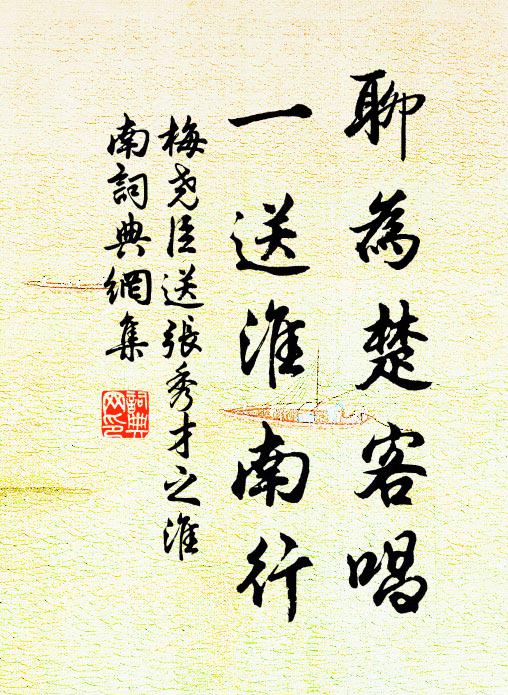 聊為楚客唱
一送淮南行
梅尧臣送張秀才之淮
南詞典網集
詞典
网印